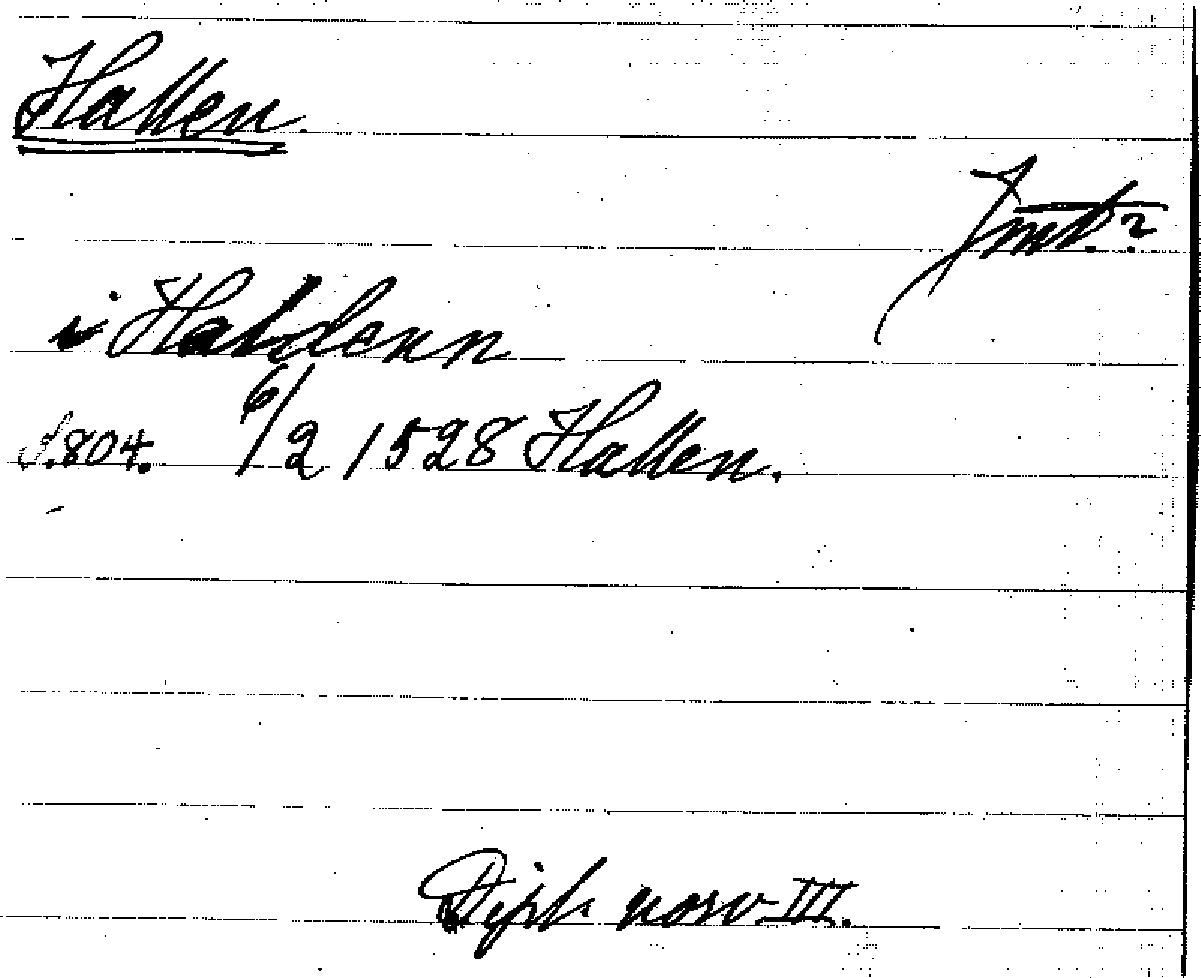 Hallen.
Jmt.?
i Haldenn
S.804. 6/2 1528 Hallen.
Dipl. norv III.